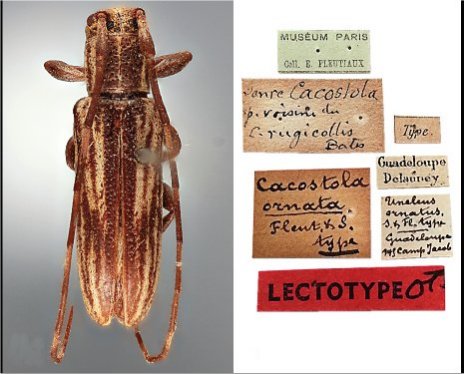 MUSÉUM PARIS
Coll. E. FLEUTIAUX
Genre Cacostola
sp. voisine du
C. rugicollis
Bates
Type.
Guadeloupe
Delauney.
Cacostola
ornata.
Fleut. & S.
type
ornatus,
S. & Fl. type
Guadeloupe
Camp Jacob
LECTOTYPE ♂